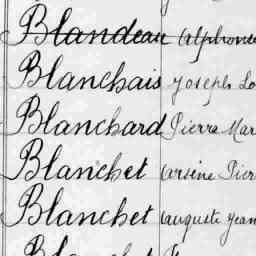 Blandeau Alphonse
Blanchais Joseph Lo
Blanchard Pierre Mar
Blanchet Arsène Pier
Blanchet Auguste Jean